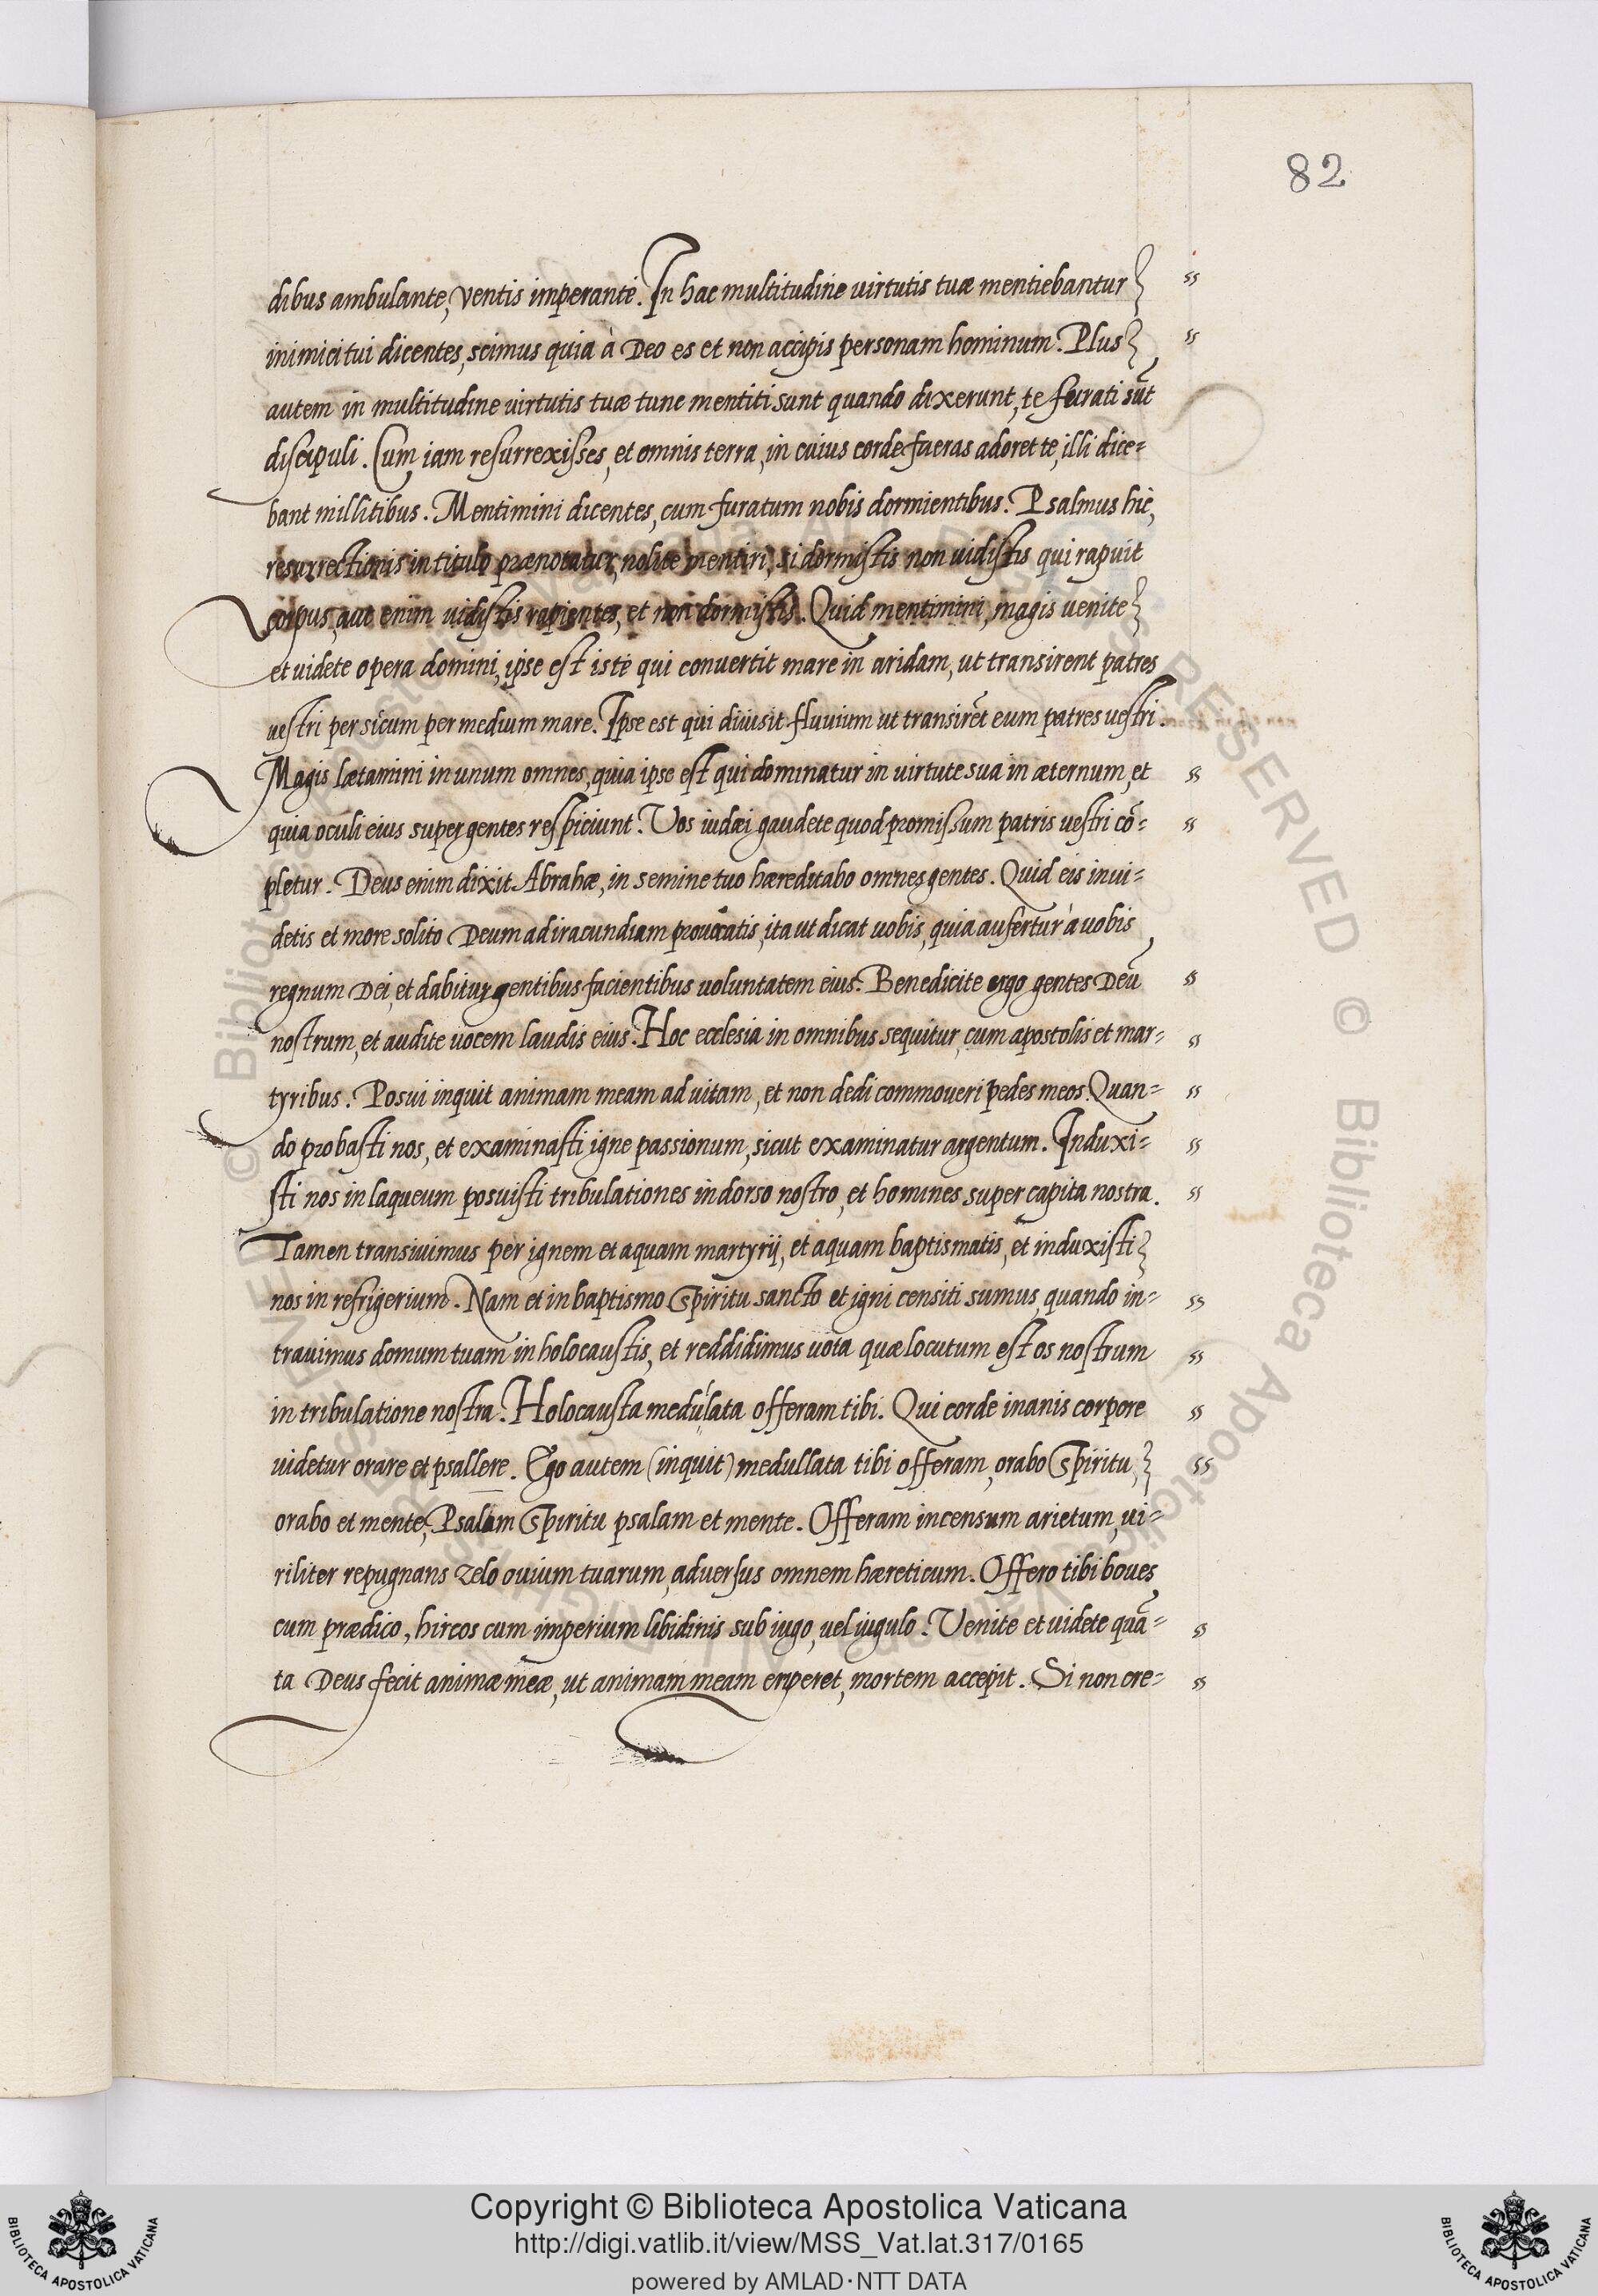 82
dibus ambulante, ventis imperante. In hac multitudine virtutis tuæ mentiebantur
inimici tui dicentes, scimus quia à Deo es et non accipis personam hominum. Plus
autem in multitudine virtutis tuæ tunc mentiti sunt quando dixerunt, te furati sūt
discipuli. Cum iam resurrexisses, et omnis terra, in cuius corde fueras adoret te, illi dice-
bant millitibus. Mentimini dicentes, eum furatum nobis dormientibus. Psalmus hic,
resurrectionis in titulo prænotatur, nolite mentiri, si dormistis non vidistis qui rapuit
corpus, aut enim vidistis rapientes, et non dormistis. Quid mentimini, magis venite
et videte opera domini, ipse est iste qui convertit mare in aridam, ut transirent patres
vestri per sicum per medium mare. Ipse est qui divisit fluvium ut transirēt eum patres vestri.
Magis lætamini in unum omnes, quia ipse est qui dominatur in virtute sua in æternum, et
quia oculi eius super gentes respiciunt. Vos iudæi gaudete quod promissum patris vestri cō-
pletur. Deus enim dixit Abrahæ, in semine tuo hæreditabo omnes gentes. Quid eis invi-
detis et more solito Deum ad iracundiam provocatis, ita ut dicat vobis, quia aufertur à vobis
regnum Dei, et dabitur gentibus facientibus voluntatem eius. Benedicite ergo gentes Deū
nostrum, et audite vocem laudis eius. Hoc ecclesia in omnibus sequitur, cum apostolis et mar-
tyribus. Posui inquit animam meam ad vitam, et non dedi commoveri pedes meos. Quan-
do probasti nos, et examinasti igne passionum, sicut examinatur argentum. Induxi-
sti nos in laqueum posuisti tribulationes in dorso nostro, et homines super capita nostra.
Tamen transivimus per ignem et aquam martyrij, et aquam baptismatis, et induxisti
nos in refrigerium. Nam et in baptismo Spiritu sancto et igni censiti sumus, quando in-
travimus domum tuam in holocaustis, et reddidimus vota quæ locutum est os nostrum
in tribulatione nostra. Holocausta medulata offeram tibi. Qui corde inanis corpore
videtur orare et psallere. Ego autem (inquit) medullata tibi offeram, orabo Spiritu,
orabo et mente, Psalam Spiritu psalam et mente. Offeram incensum arietum, vi-
riliter repugnans zelo ovium tuarum, adversus omnem hæreticum. Offero tibi boves
cum prædico, hircos cum imperium libidinis sub iugo, vel iugulo. Venite et videte quā-
ta Deus fecit animæ meæ, ut animam meam eriperet, mortem accepit. Si non cre-
Copyright © Biblioteca Apostolica Vaticana
http://digi.vatlib.it/view/MSS_Vat.lat.317/0165
powered by AMLAD·NTT DATA
BIBLIOTECA APOSTOLICA VATICANA
BIBLIOTECA APOSTOLICA VATICANA